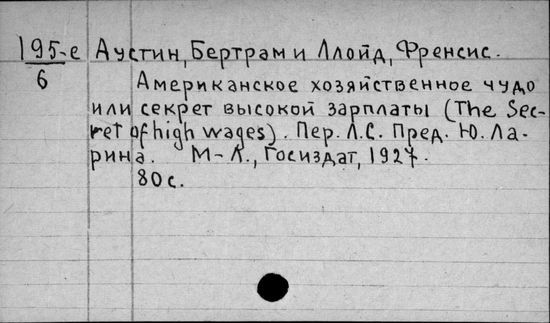 195-е Аустин, Бертрам и Ллойд, Френсис.
6
Американское хозяйственное чудо
или секрет высокой зарплаты (The Sec-
ret of high wages). Пер. Л.С. Пред. Ю. Ла-
рина. М-Л., Госиздат, 1927.
80 с.